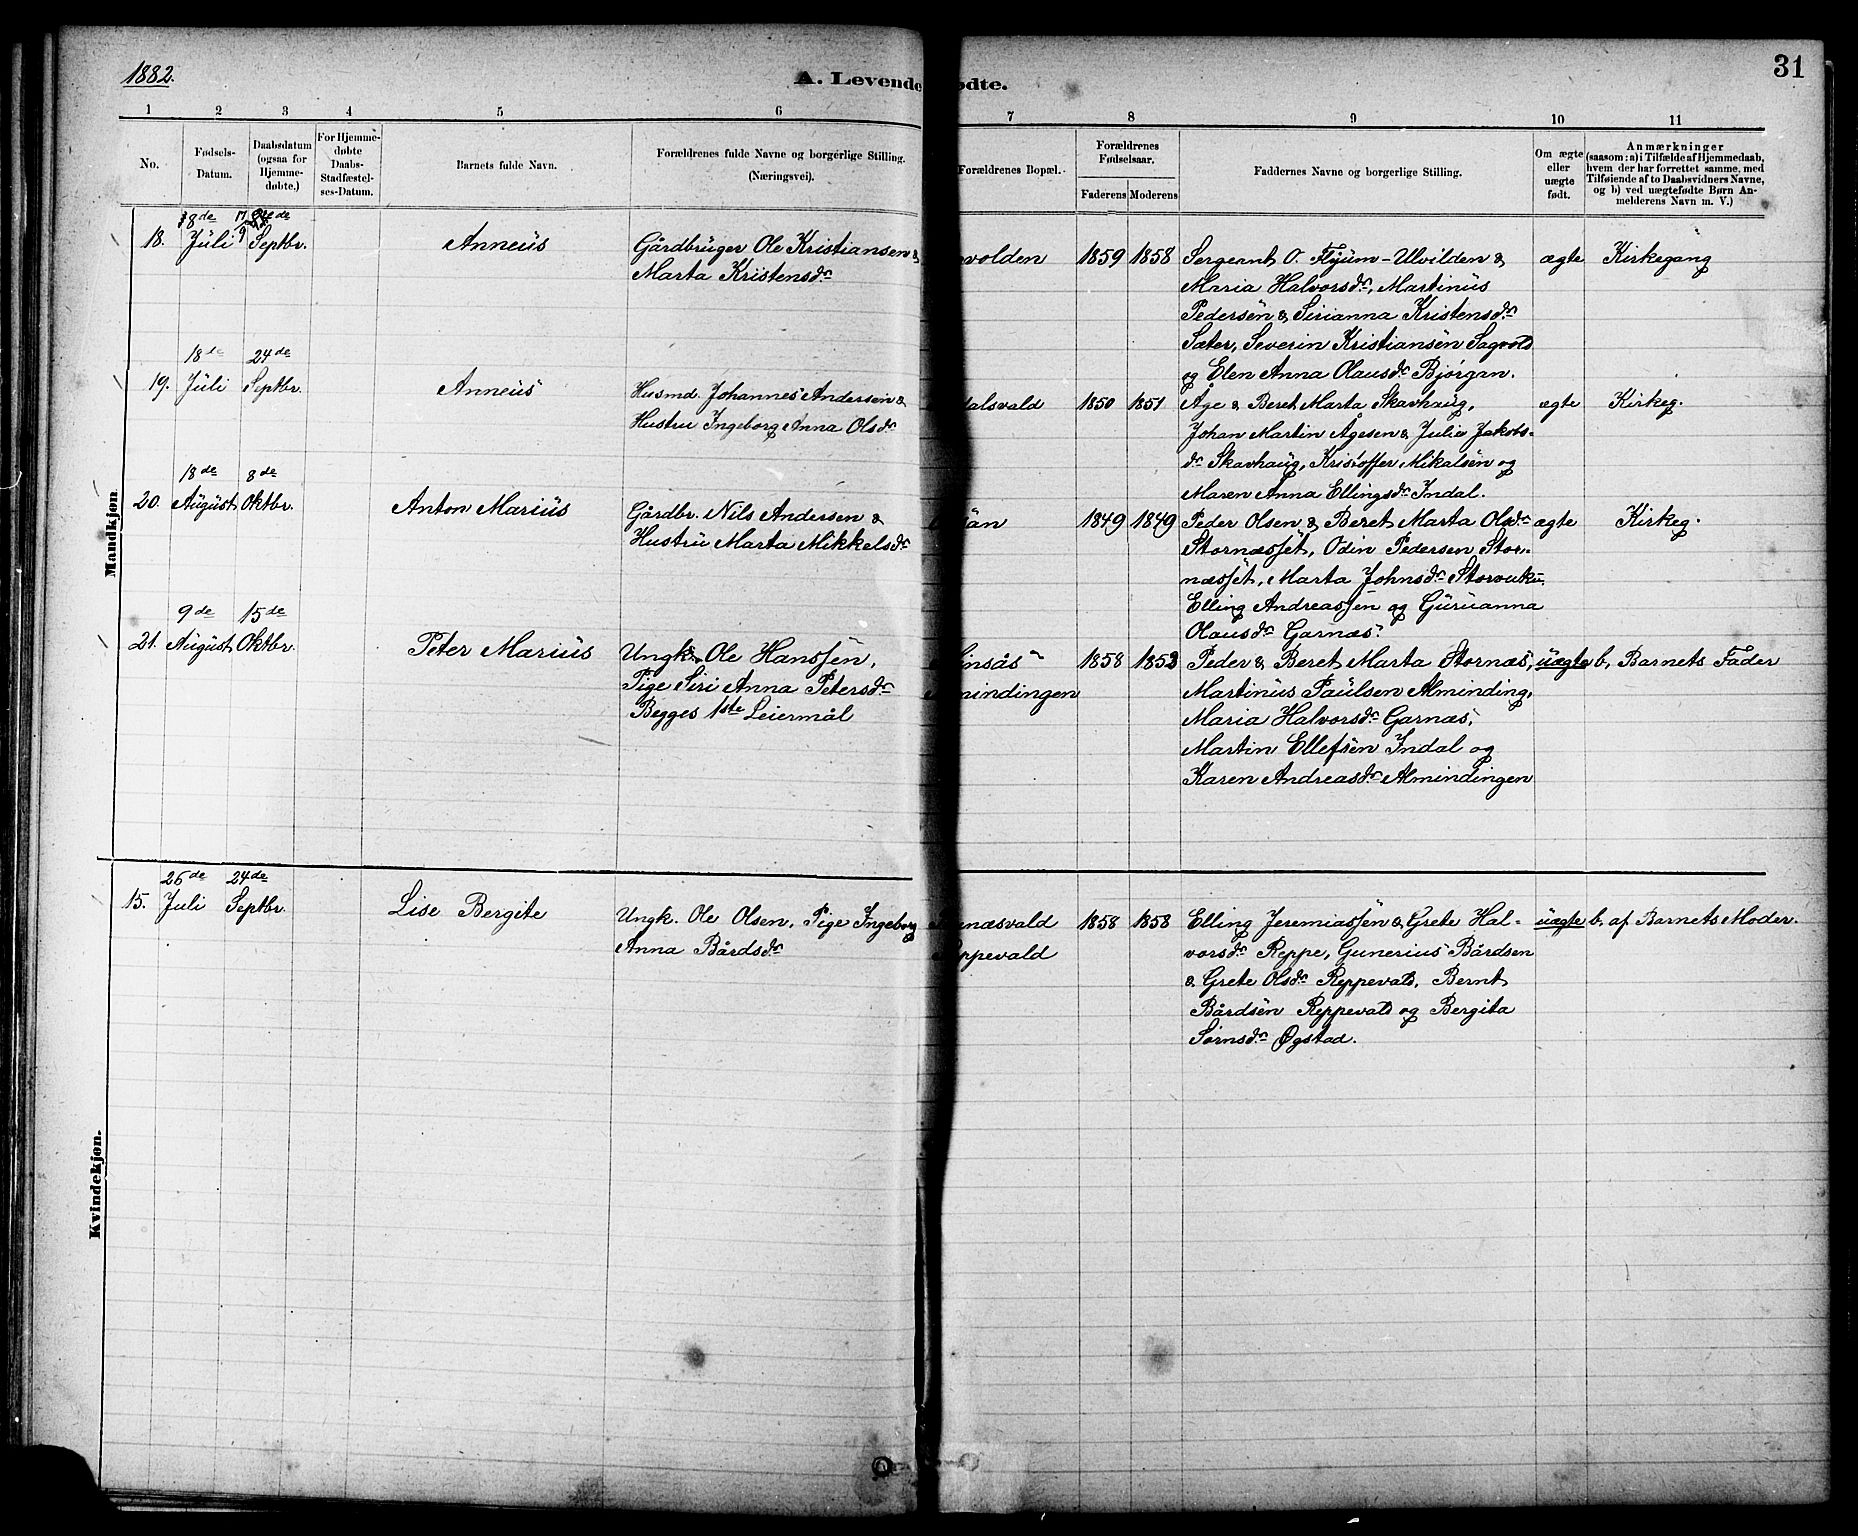 1882.
A. Levende ødte.
31
1 2 3 4 5 6 7 8 9 10 11
No.
Fødsels-
Datum.
Daabsdatum
(ogsaa for
Hjemme-
døbte.)
For Hjemme-
døbte
Daabs-
Stadfæstel-
ses-Datum.
Barnets fulde Navn.
Forældrenes fulde Navne og borgerlige Stilling.
(Næringsvei).
Forældrenes Bopæl.
Forældrenes
Fødselsaar.
Faderens Moderens
Faddernes Navne og borgerlige Stilling.
Om ægte
eller
uægte
født.
Anmærkninger
(saasom: a) i Tilfælde af Hjemmedaab,
hvem der har forrettet samme, med
Tilføiende af to Daabsvidners Navne,
og b) ved uægtefødte Børn An-
melderens Navn m. V.)
Mandkjøn
18.
8de
Juli
Septbr.
Anneus
Gårdbruger Ole Kristiansen &
Marta Kristensdr
volden
1859 1858
Sergernt O. Flyum-Ulvilden &
Maria Halvorsdr, Martinus
Pedersen & Sirianna Kristensdr
Sæter, Severin Kristiansen Sagvold
og Elen Anna Olausdr Bjørgan.
ægte
Kirkegang
19.
18de
Juli
24de
Septbr.
Anneus
Husmd. Johannes Andersen &
Hustru Ingeborg Anna Olsdr
dalsvald
1850 1851
Åge & Beret Marta Skavhaug,
Johan Martin Ågesen & Julia Jakobs-
dr Skavhaug, Kristoffer Mikalsen og
Maren Anna Ellingsdr Indal.
ægte
Kirkeg.
20.
18de
August
8de
Oktbr.
Anton Marius
Gårdbr. Nils Andersen &
Hustru Marta Mikkelsdr
1849 1849
Peder Olsen & Beret Marta Olsdr
Stornæsset, Odin Pedersen Stor-
næsset, Marta Johnsdr Storvuku
Elling Andreassen og Guruanna
Olausdr Garnæs.
ægte
Kirkeg.
21.
9de
August
15de
Oktbr.
Peter Marius
Ungk. Ole Hanssen,
Pige Siri Anna Petersdr
Begges 1ste Leiermål
insås
mindingen
1858 1853
Peder & Beret Marta Stornæs,
Martinus Paulsen Alminding,
Maria Halvorsdr Garnæs,
Martin Ellefsen Indal og
Karen Andreasdr Almindingen
uægte
b, Barnets Fader
Kvindekjøn.
15.
26de
Juli
24de
Septbr.
Lise Bergite
Ungk. Ole Olsen, Pige Ingeborg
Anna Bårdsdr
næsvald
ppevald
1858 1858
Elling Jeremiassen & Grete Hal-
vorsdr Reppe, Gunerius Bårdsen
& Grete Olsdr Reppevald, Bernt
Bårdsen Reppevald og Bergita
Sørnsdr Øgstad.
uægte
b, af Barnets Moder.